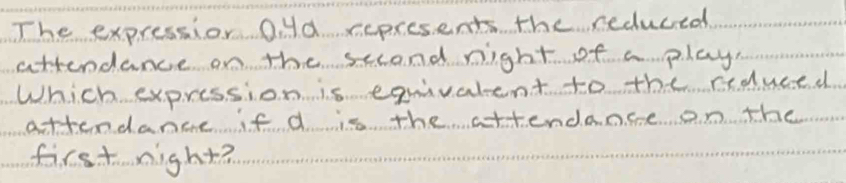 The expression 0.4a represents the reduced
attendance on the second night of a play.
Which expression is equivalent to the reduced
attendance if a is the attendance on the
first night?